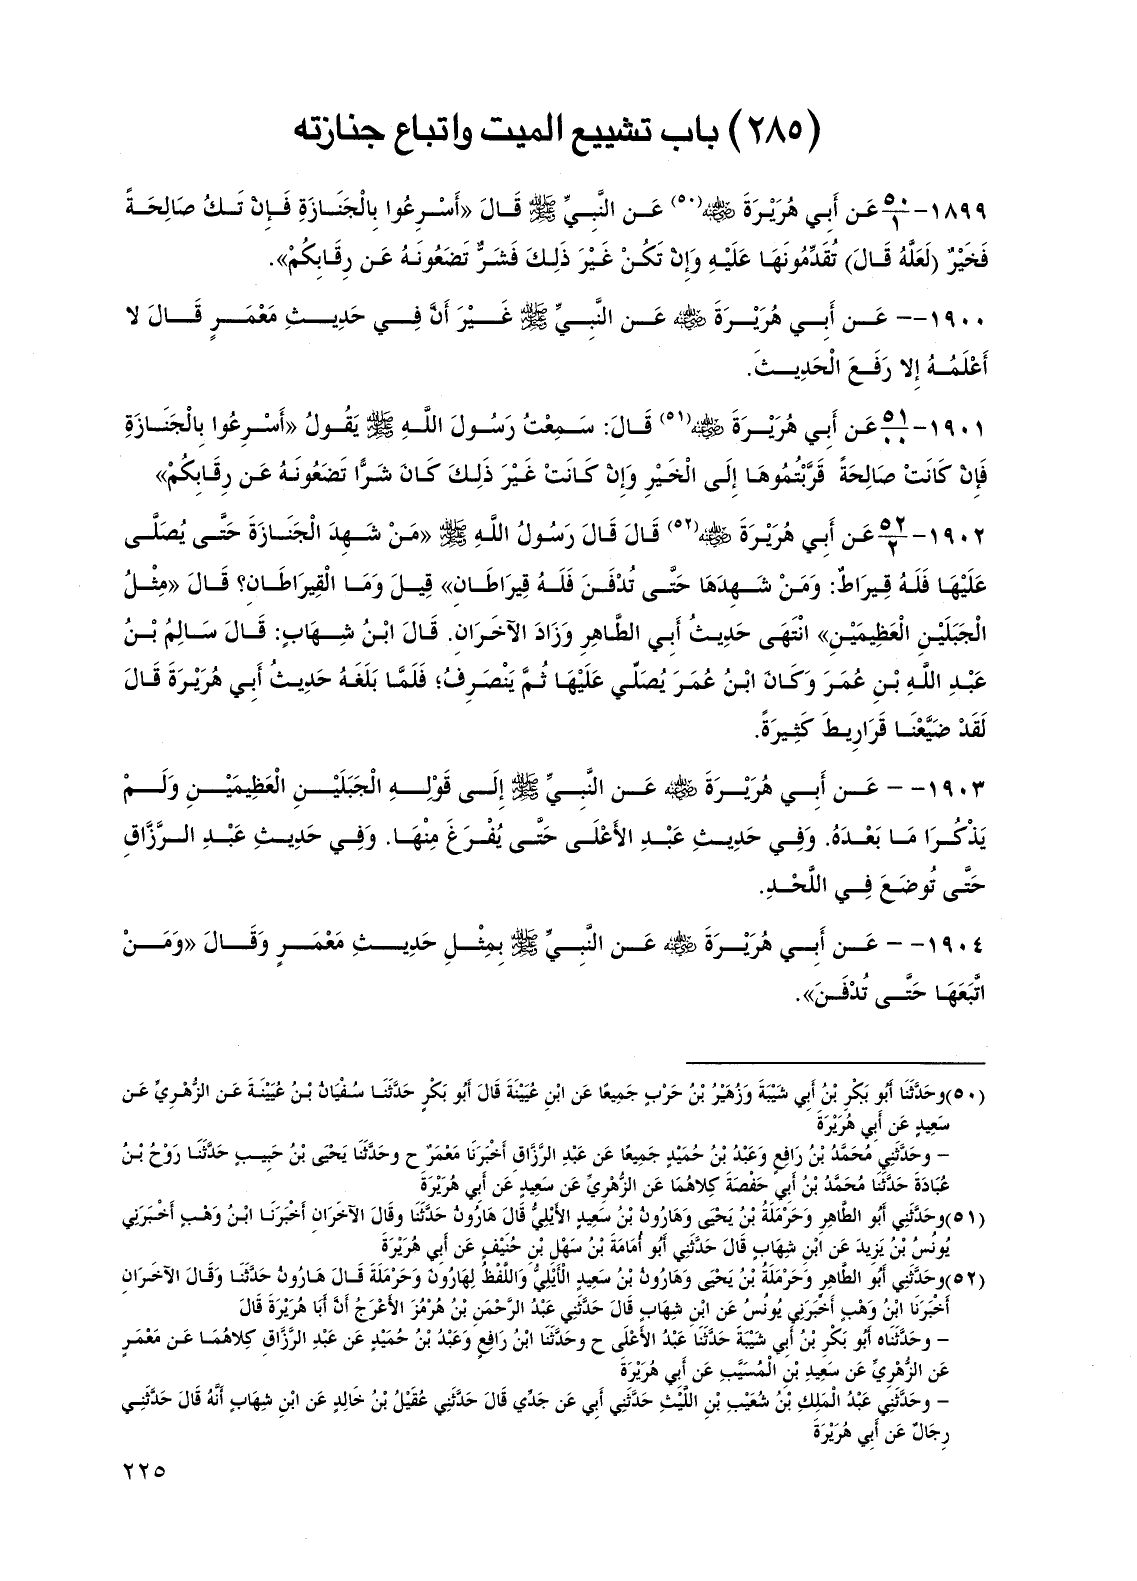 (٢٨٥) باب تشييع الميت واتباع جنازته
١٨٩٩-٥٠/١ عَن أَبِي هُرَيْرَةَ ﷺ(٥٠) عَنِ النَّبِيِّ ﷺ قَالَ «أَسْرِعُوا بِالْجَنَازَةِ فَإِنْ تَكُ صَالِحَةً
فَخَيْرٌ (لَعَلَّهُ قَالَ) تُقَدِّمُونَهَا عَلَيْهِ وَإِنْ تَكُنْ غَيْرَ ذَلِكَ فَشَرٌّ تَضَعُونَهُ عَن رِقَابِكُمْ».
١٩٠٠-- عَن أَبِي هُرَيْرَةَ رضي الله عنه عَنِ النَّبِيِّ ﷺ غَيْرَ أَنَّ فِي حَدِيثِ مَعْمَرٍ قَالَ لا
أَعْلَمُهُ إِلا رَفَعَ الْحَدِيثَ.
١٩٠١-٥١/٠٠ عَن أَبِي هُرَيْرَةَ رضي الله عنه(٥١) قَالَ: سَمِعْتُ رَسُولَ اللَّهِ ﷺ يَقُولُ «أَسْرِعُوا بِالْجَنَازَةِ
فَإِنْ كَانَتْ صَالِحَةً قَرَّبْتُمُوهَا إِلَى الْخَيْرِ وَإِنْ كَانَتْ غَيْرَ ذَلِكَ كَانَ شَرًّا تَضَعُونَهُ عَن رِقَابِكُمْ»
١٩٠٢-٥٢/٢ عَن أَبِي هُرَيْرَةَ رضي الله عنه(٥٢) قَالَ قَالَ رَسُولُ اللَّهِ ﷺ «مَنْ شَهِدَ الْجَنَازَةَ حَتَّى يُصَلَّى
عَلَيْهَا فَلَهُ قِيرَاطٌ: وَمَنْ شَهِدَهَا حَتَّى تُدْفَنَ فَلَهُ قِيرَاطَانِ» قِيلَ وَمَا الْقِيرَاطَانِ؟ قَالَ «مِثْلُ
الْجَبَلَيْنِ الْعَظِيمَيْنِ» انْتَهَى حَدِيثُ أَبِي الطَّاهِرِ وَزَادَ الآخَرَانِ. قَالَ ابْنُ شِهَابٍ: قَالَ سَالِمُ بْنُ
عَبْدِ اللَّهِ بْنِ عُمَرَ وَكَانَ ابْنُ عُمَرَ يُصَلِّي عَلَيْهَا ثُمَّ يَنْصَرِفُ؛ فَلَمَّا بَلَغَهُ حَدِيثُ أَبِي هُرَيْرَةَ قَالَ
لَقَدْ ضَيَّعْنَا قَرَارِيطَ كَثِيرَةً.
١٩٠٣- - عَن أَبِي هُرَيْرَةَ رضي الله عنه عَنِ النَّبِيِّ ﷺ إِلَى قَوْلِهِ الْجَبَلَيْنِ الْعَظِيمَيْنِ وَلَمْ
يَذْكُرَا مَا بَعْدَهُ. وَفِي حَدِيثِ عَبْدِ الأَعْلَى حَتَّى يُفْرَغَ مِنْهَا. وَفِي حَدِيثِ عَبْدِ الرَّزَّاقِ
حَتَّى تُوضَعَ فِي اللَّحْدِ.
١٩٠٤- - عَن أَبِي هُرَيْرَةَ رضي الله عنه عَنِ النَّبِيِّ ﷺ بِمِثْلِ حَدِيثِ مَعْمَرٍ وَقَالَ «وَمَنْ
اتَّبَعَهَا حَتَّى تُدْفَنَ».
(٥٠)وحَدَّثَنَا أَبُو بَكْرِ بْنُ أَبِي شَيْبَةَ وَزُهَيْرُ بْنُ حَرْبٍ جَمِيعًا عَن ابْنِ عُيَيْنَةَ قَالَ أَبُو بَكْرٍ حَدَّثَنَا سُفْيَانُ بْنُ عُيَيْنَةَ عَن الزُّهْرِيِّ عَن
سَعِيدٍ عَن أَبِي هُرَيْرَةَ
– وحَدَّثَنِي مُحَمَّدُ بْنُ رَافِعٍ وَعَبْدُ بْنُ حُمَيْدٍ جَمِيعًا عَن عَبْدِ الرَّزَّاقِ أَخْبَرَنَا مَعْمَرٌ ح وحَدَّثَنَا يَحْيَى بْنُ حَبِيبٍ حَدَّثَنَا رَوْحُ بْنُ
عُبَادَةَ حَدَّثَنَا مُحَمَّدُ بْنُ أَبِي حَفْصَةَ كِلاهُمَا عَن الزُّهْرِيِّ عَن سَعِيدٍ عَن أَبِي هُرَيْرَةَ
(٥١)وحَدَّثَنِي أَبُو الطَّاهِرِ وَحَرْمَلَةُ بْنُ يَحْيَى وَهَارُونُ بْنُ سَعِيدٍ الأَيْلِيُّ قَالَ هَارُونُ حَدَّثَنَا وقَالَ الآخَرَانِ أَخْبَرَنَا ابْنُ وَهْبٍ أَخْبَرَنِي
يُونُسُ بْنُ يَزِيدَ عَن ابْنِ شِهَابٍ قَالَ حَدَّثَنِي أَبُو أُمَامَةَ بْنُ سَهْلِ بْنِ حُنَيْفٍ عَن أَبِي هُرَيْرَةَ
(٥٢)وحَدَّثَنِي أَبُو الطَّاهِرِ وَحَرْمَلَةُ بْنُ يَحْيَى وَهَارُونُ بْنُ سَعِيدٍ الأَيْلِيُّ وَاللَّفْظُ لِهَارُونَ وَحَرْمَلَةَ قَالَ هَارُونُ حَدَّثَنَا وَقَالَ الآخَرَانِ
أَخْبَرَنَا ابْنُ وَهْبٍ أَخْبَرَنِي يُونُسُ عَن ابْنِ شِهَابٍ قَالَ حَدَّثَنِي عَبْدُ الرَّحْمَنِ بْنُ هُرْمُزَ الأَعْرَجُ أَنَّ أَبَا هُرَيْرَةَ قَالَ
– وحَدَّثَنَاه أَبُو بَكْرِ بْنُ أَبِي شَيْبَةَ حَدَّثَنَا عَبْدُ الأَعْلَى ح وحَدَّثَنَا ابْنُ رَافِعٍ وَعَبْدُ بْنُ حُمَيْدٍ عَن عَبْدِ الرَّزَّاقِ كِلاهُمَا عَن مَعْمَرٍ
عَن الزُّهْرِيِّ عَن سَعِيدِ بْنِ الْمُسَيَّبِ عَن أَبِي هُرَيْرَةَ
– وحَدَّثَنِي عَبْدُ الْمَلِكِ بْنُ شُعَيْبِ بْنِ اللَّيْثِ حَدَّثَنِي أَبِي عَن جَدِّي قَالَ حَدَّثَنِي عُقَيْلُ بْنُ خَالِدٍ عَن ابْنِ شِهَابٍ أَنَّهُ قَالَ حَدَّثَنِي
رِجَالٌ عَن أَبِي هُرَيْرَةَ
٢٢٥